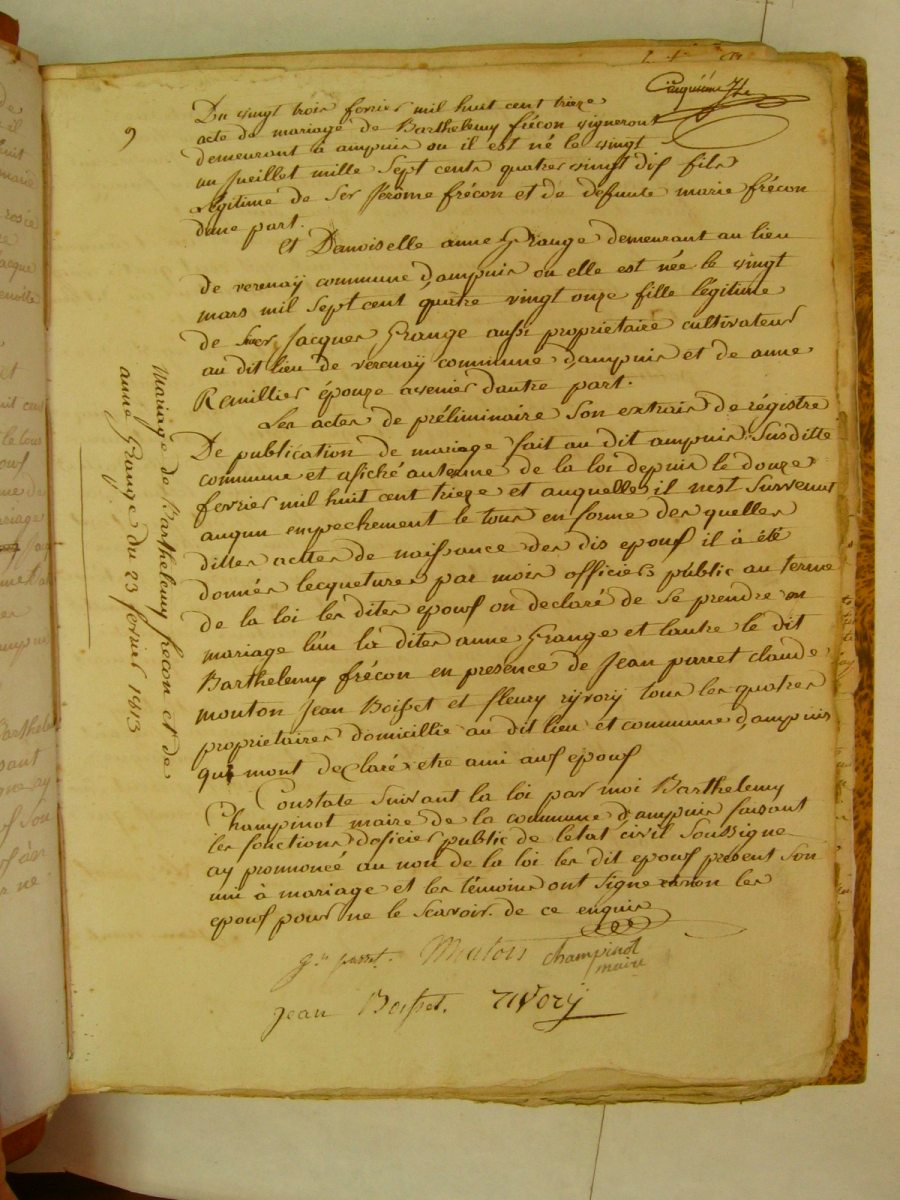 Cinquième
9
Du vingt trois fevrier mil huit cent trieze
acte de mariage de Barthelemy frécon vigneront
demeurant à ampuis ou il est né le vingt
un jueillet mille Sept cents quatres vingt dis fils
légitime de Ser Jérome frécon et de défunte marie frécon
dune part.
Et Demoiselle anne Grange demeurant au lieu
de verenaÿ commune d'ampuis ou elle est née le vingt
mars mil Sept cent quatre vingt onze fille légitime
de Suer Jacques Grange aussi proprietaire cultivateur
au dit lieu de verenaÿ commune d'ampuis et de anne
Remillier épouze avenier dautre part.
Les actes de préliminaire Son extrais de régistre
De publication de mariage fait au dit ampuis Susditte
commune et afiché auterme de la loi depuis le douze
fevrier mil huit cent trieze et auquelles il nest Survenus
augun empechement le tous en forme des quelles
dittes acttes de naissance des dis epous il à été
donnés lecqueture par mois officiers public au terme
de la loi les dites epous on declaré de Se prendre en
mariage lún la dites anne Grange et lautre le dit
Barthelemy frécon en presence de Jean parret claude
mouton Jean Boisset et fleury rÿvorÿ tous les quatres
proprietaires domicillié au dit lieu et commune d'ampuis
qui mont declaré etre ami aus epous
Constate Suivant la loi par moi Barthelemy
Champinot maire de la commune d'ampuis faisant
les fonctions d'oficier public de létat civil Soussigne
ay pronnoncé au non de la loi les dit epous présent Son
uni à mariage et les témoins ont Signe non les
epous pour ne le Scavoir. de ce enquis
champinot
maire
Jean Boisset. rivorÿ
Mariage de Barthelemy frecon et de
anne Grange du 23 fevrier 1813